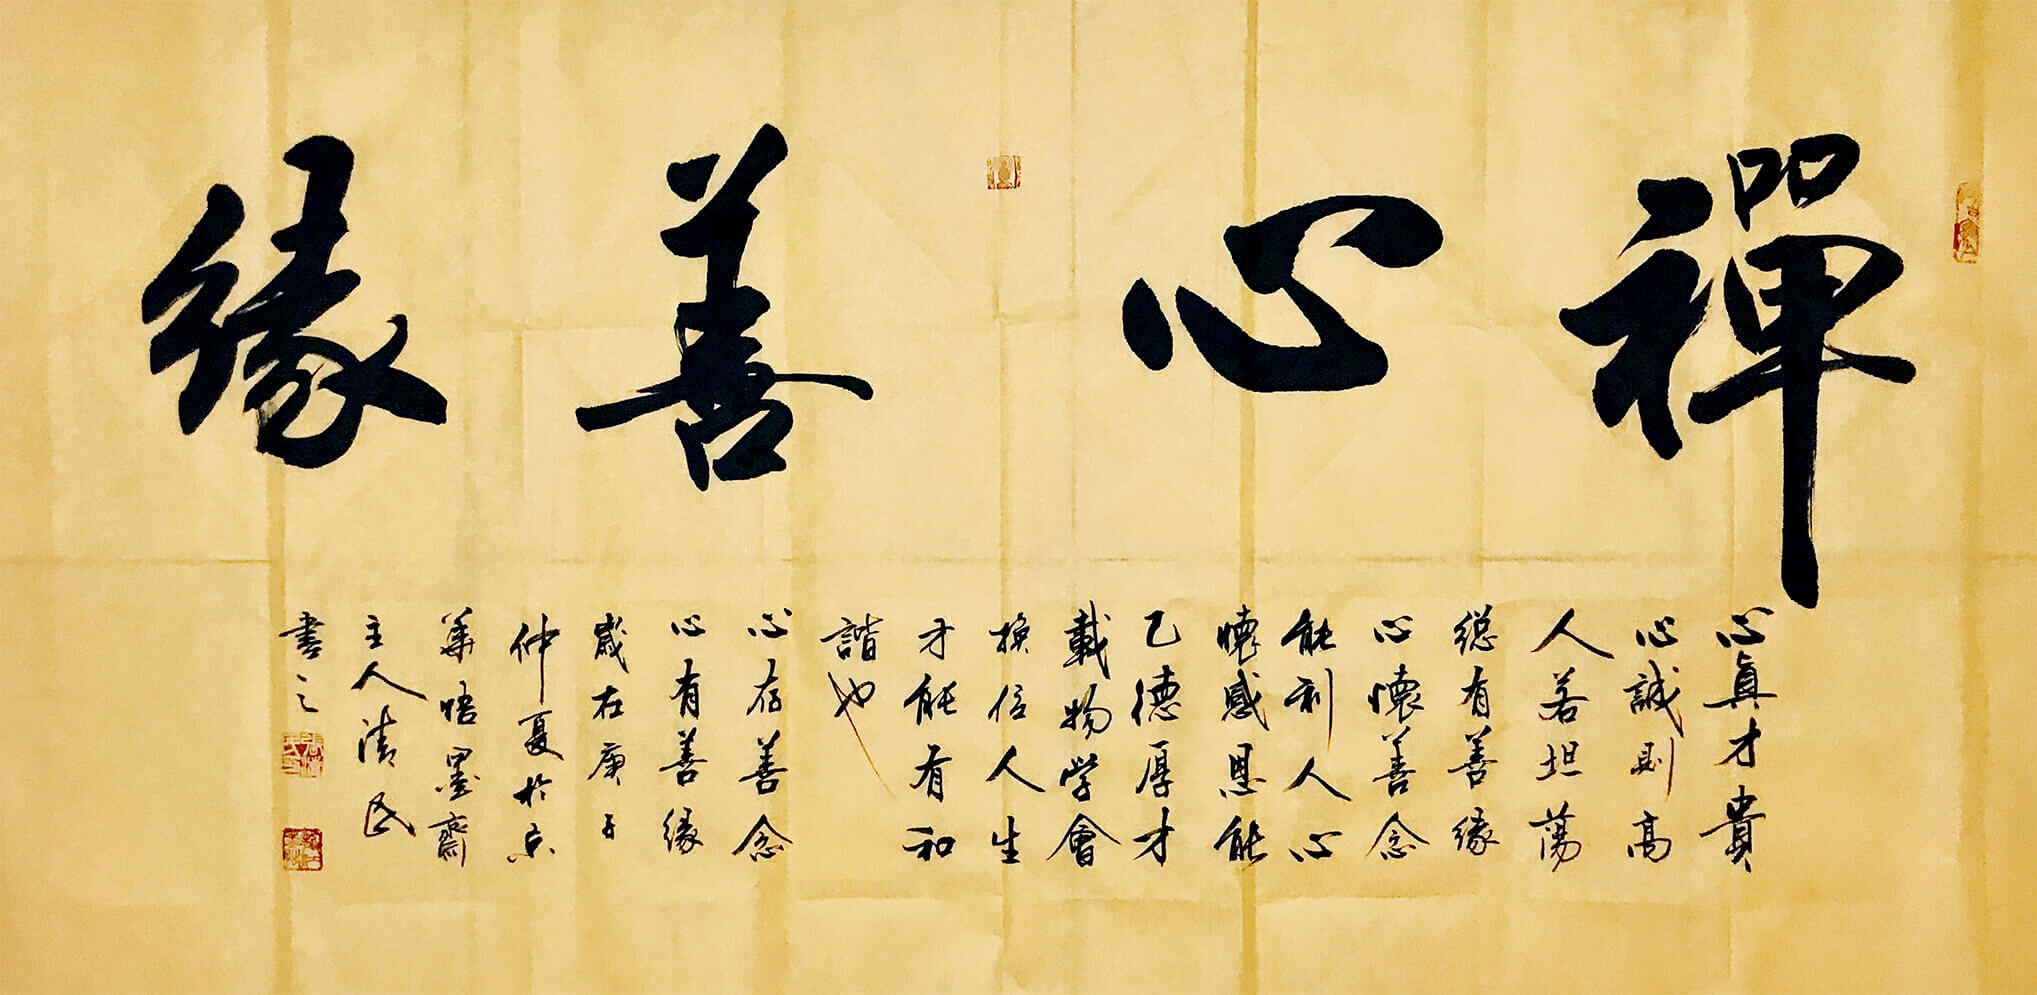 禪心善緣
心真才貴
心誠則高
人若坦蕩
總有善緣
心懷善念
能利人心
懷感恩能
已德厚才
載物学會
換位人生
才能有和
諧也
心存善念
心有善緣
歲在庚子
仲夏於京
華悟墨齋
主人清民
書之